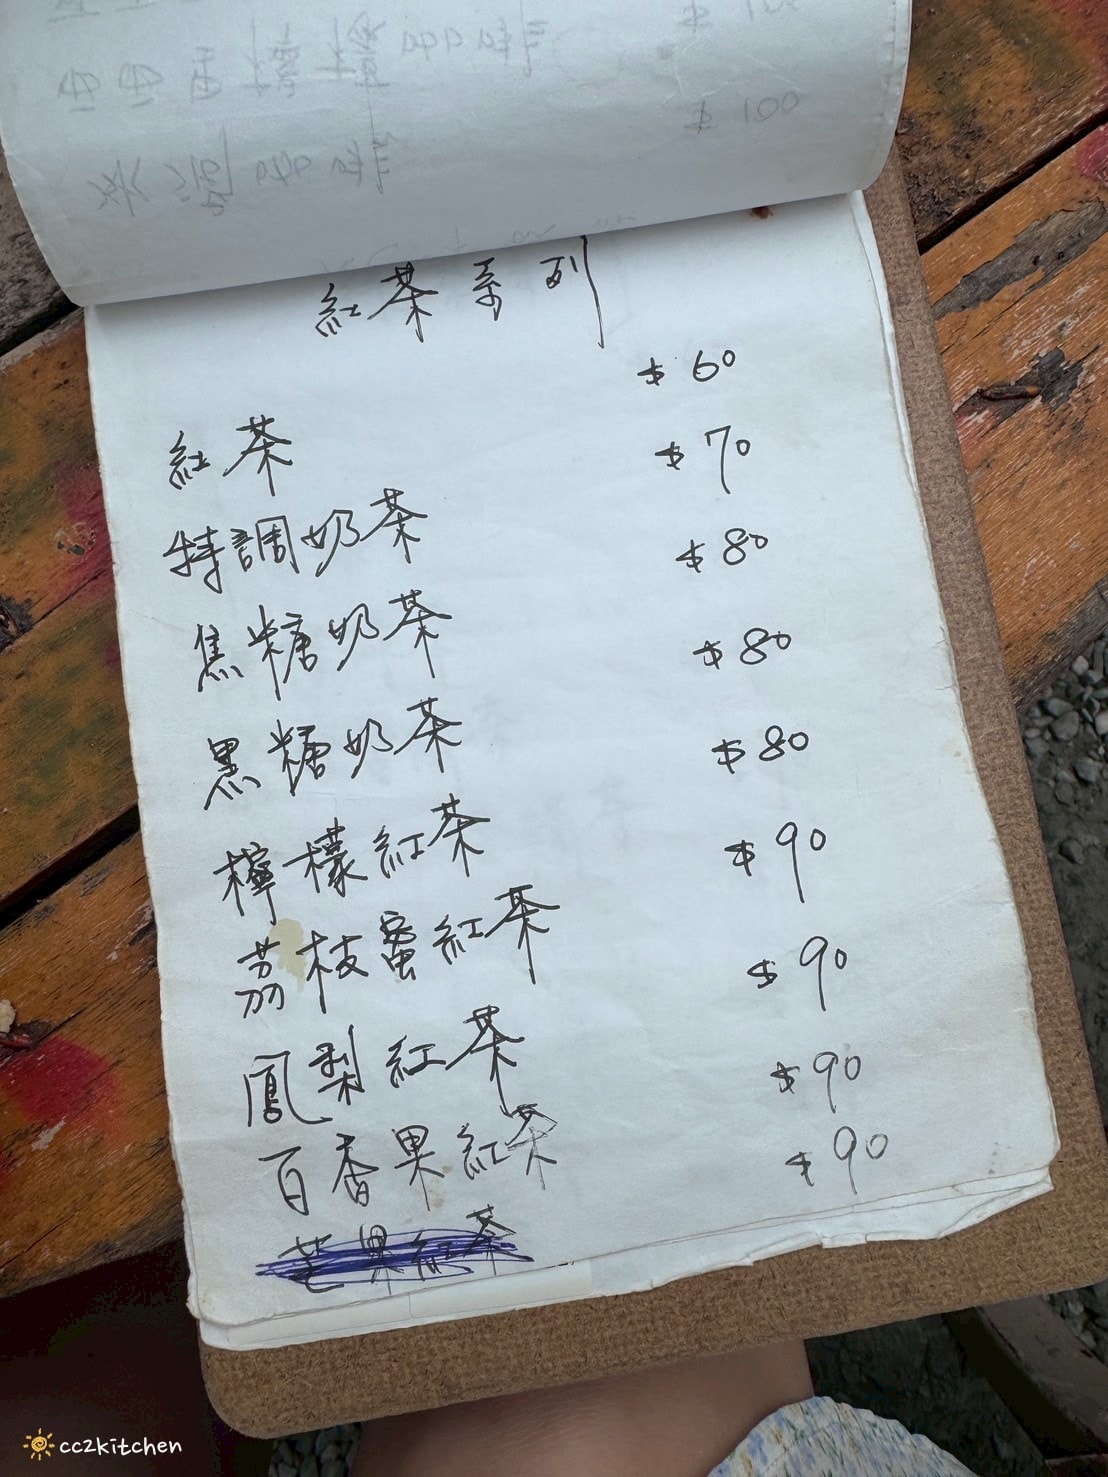 $ 100
紅茶系列
紅茶 $ 60
特調奶茶 $ 70
焦糖奶茶 $ 80
黑糖奶茶 $ 80
檸檬紅茶 $ 80
荔枝蜜紅茶 $ 90
鳳梨紅茶 $ 90
百香果紅茶 $ 90
芒果紅茶 $ 90
cc2kitchen